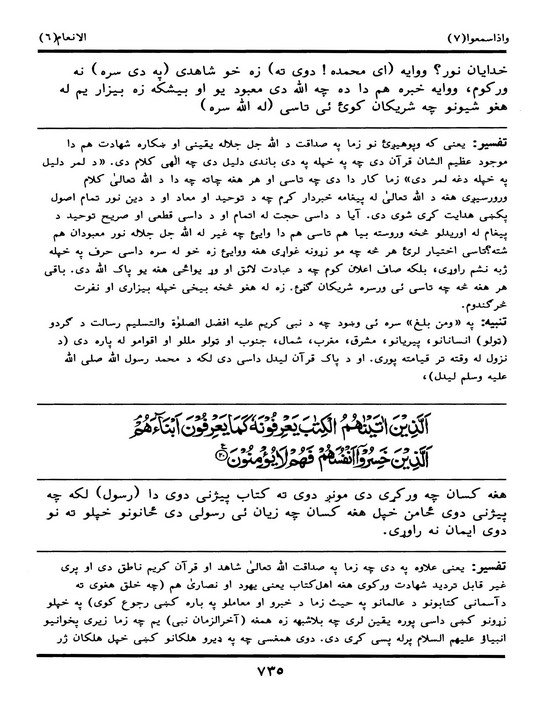 واذاسمعوا(٧) الانعام(٦)
خدایان نور؟ ووایه (ای محمده! دوی ته) زه خو شاهدی (په دی سره) نه
ورکوم، ووایه خبره هم دا ده چه الله دی معبود یو او بیشکه زه بیزار یم له
هغو شیونو چه شریکان کوئ ئی تاسی (له الله سره)
تفسیر: یعنی که وپوهیږئ نو زما په صداقت د الله جل جلاله یقینی او ښکاره شهادت هم دا
موجود عظیم الشان قرآن دی چه په خپله په دی باندی دلیل دی چه الٰهی کلام دی. «د لمر دلیل
په خپله دغه لمر دی» زما کار دا دی چه تاسی او هر هغه چاته چه دا د الله تعالیٰ کلام
ورورسیږی هغه د الله تعالیٰ له پیغامه خبردار کړم چه د توحید او معاد او د دین نور تمام اصول
پکښی هدایت کړی شوی دی. آیا د داسی حجت له اتمام او د داسی قطعی او صریح توحید د
پیغام له اوریدلو څخه وروسته بیا هم تاسی هم دا وایئ چه غیر له الله جل جلاله نور معبودان هم
شته؟تاسی اختیار لرئ هر څه چه مو زړونه غواړی هغه ووایئ زه خو له سره داسی حرف په خپله
ژبه نشم راوړی، بلکه صاف اعلان کوم چه د عبادت لائق او وړ یواځی هغه یو پاک الله دی. باقی
هر هغه څه چه تاسی ئی ورسره شریکان ګڼئ. زه له هغو څخه بیخی خپله بیزاری او نفرت
څرګندوم.
تنبیه: په «ومن بلغ» سره ئی وښود چه د نبی کریم علیه افضل الصلوٰة والتسلیم رسالت د ګردو
(ټولو) انسانانو، پیریانو، مشرق، مغرب، شمال، جنوب او ټولو مللو او اقوامو له پاره دی (د
نزول له وقته تر قیامته پوری. او د پاک قرآن لیدل داسی دی لکه د محمد رسول الله صلی الله
علیه وسلم لیدل)،
اَلَّذِیْنَ اٰتَیْنٰهُمُ الْکِتٰبَ یَعْرِفُوْنَهٗ کَمَا یَعْرِفُوْنَ اَبْنَآءَهُمْ
اَلَّذِیْنَ خَسِرُوْۤا اَنْفُسَهُمْ فَهُمْ لَا یُؤْمِنُوْنَ ﴿۲۰﴾
هغه کسان چه ورکړی دی مونږ دوی ته کتاب پیژنی دوی دا (رسول) لکه چه
پیژنی دوی ځامن خپل هغه کسان چه زیان ئی رسولی دی ځانونو خپلو ته نو
دوی ایمان نه راوړی.
تفسیر: یعنی علاوه په دی چه زما په صداقت الله تعالیٰ شاهد او قرآن کریم ناطق دی او پری
غیر قابل تردید شهادت ورکوی هغه اهل‌کتاب یعنی یهود او نصاریٰ هم (چه خلق هغوی ته
دآسمانی کتابونو د عالمانو په حیث زما د خبرو او معاملو په باره کښی رجوع کوی) په خپلو
زړونو کښی داسی پوره یقین لری چه بلاشبهه زه همغه (آخرالزمان نبی) یم چه زما زیری پخوانیو
انبیاؤ علیهم السلام پرله پسی کړی دی. دوی همغسی چه په ډیرو هلکانو کښی خپل هلکان ژر
٧٣٥